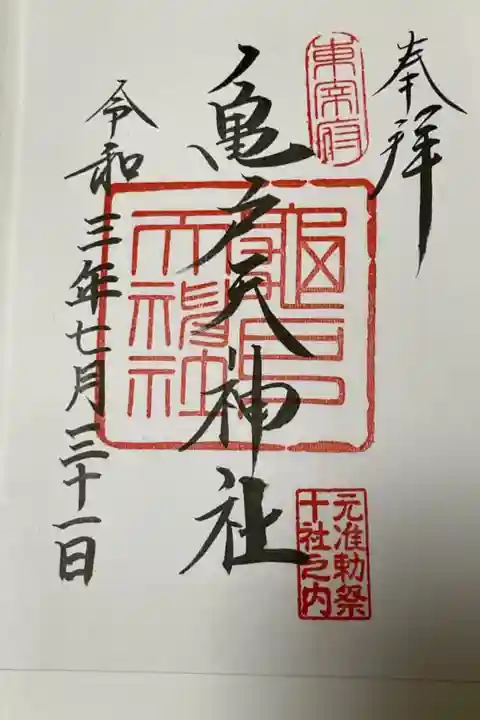 奉拝
東宰府
亀戸天神社
龜戸天神社
元准勅祭
十社之内
令和三年七月三十一日